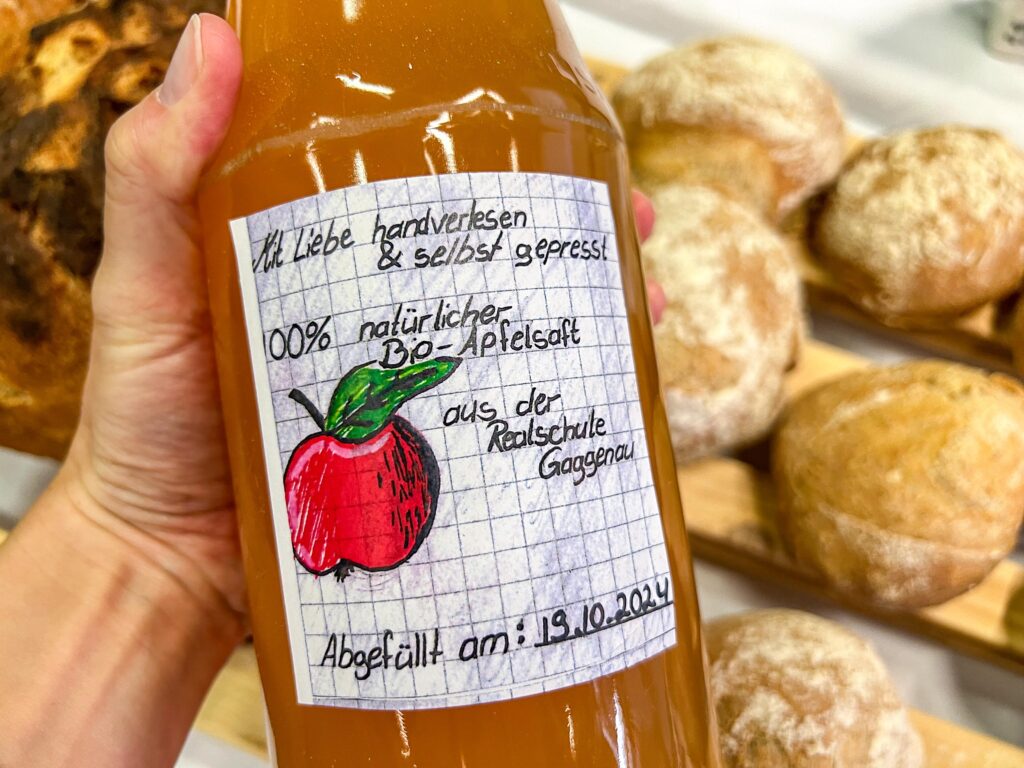 Mit Liebe handverlesen
& selbst gepresst
100% natürlicher
Bio-Apfelsaft
aus der
Realschule
Gaggenau
Abgefüllt am: 19.10.2024